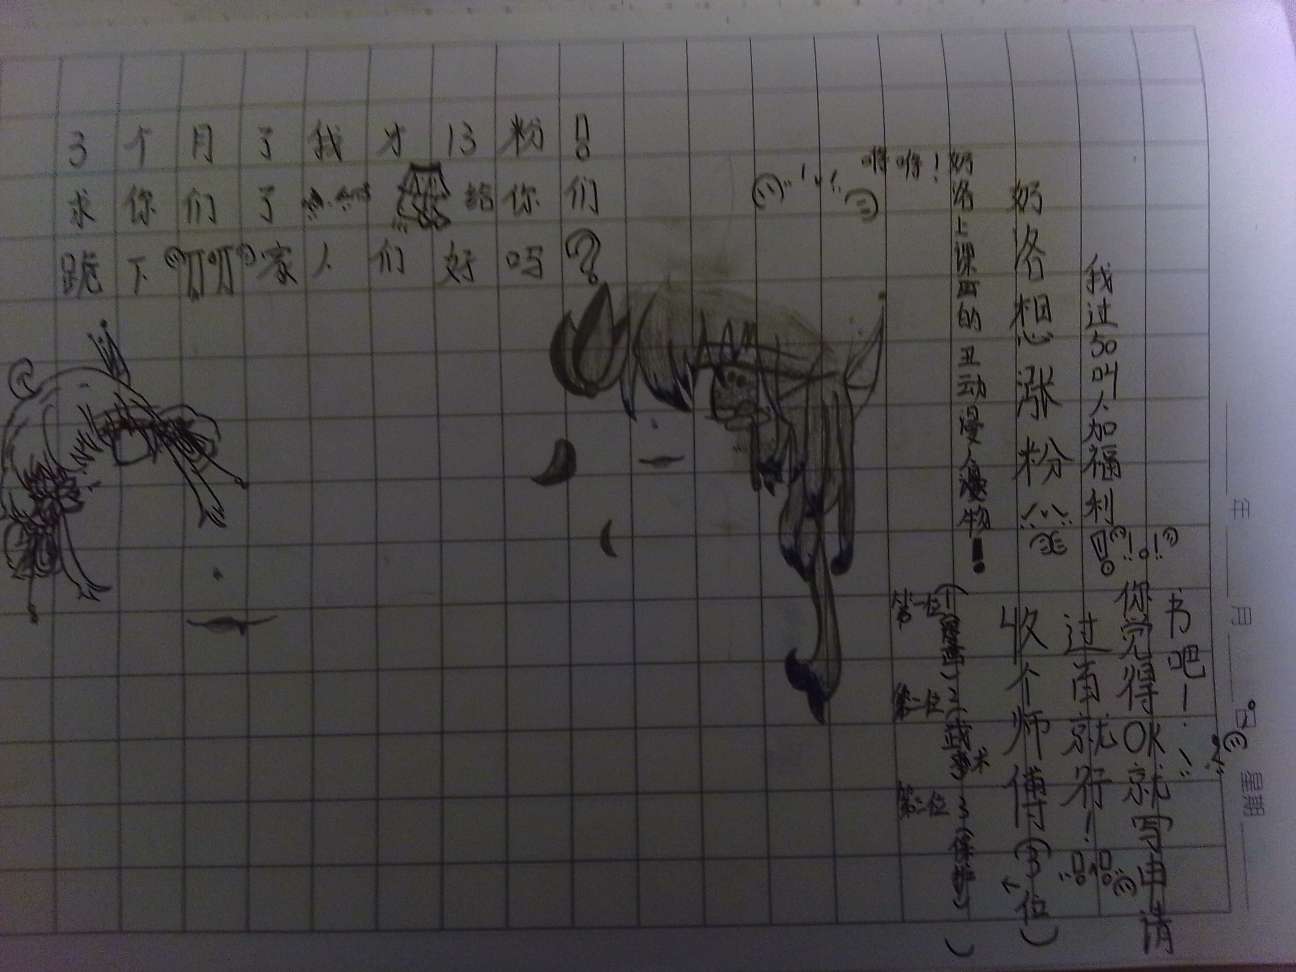 3个月了我才13粉!!
求你们了 给你们
跪下 家人们好吗?
啼啼!
奶洛上课画的丑动漫人漫物!
奶洛想涨粉
我过50叫人加福利!!
收个师傅(3位)
过百就行!
你觉得OK就写申请
书吧!
第一位
第二位
第三位
1
2
3
年 月 日 星期